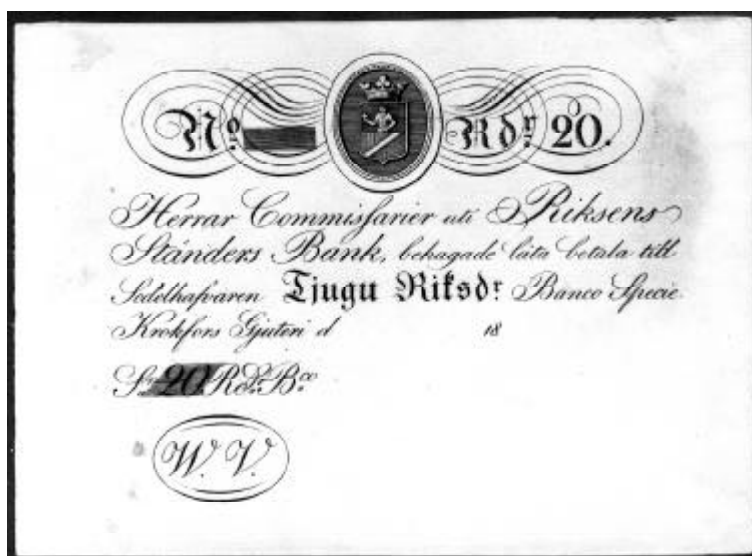 No Rdr 20.
Herrar Commissarier uti Riksens
Ständers Bank, behagade låta betala till
Sedelhafvaren Tjugu Riksdr Banco Specie.
Krokfors Gjuteri d 18
Sr 20 Rdr Bco
W. V.